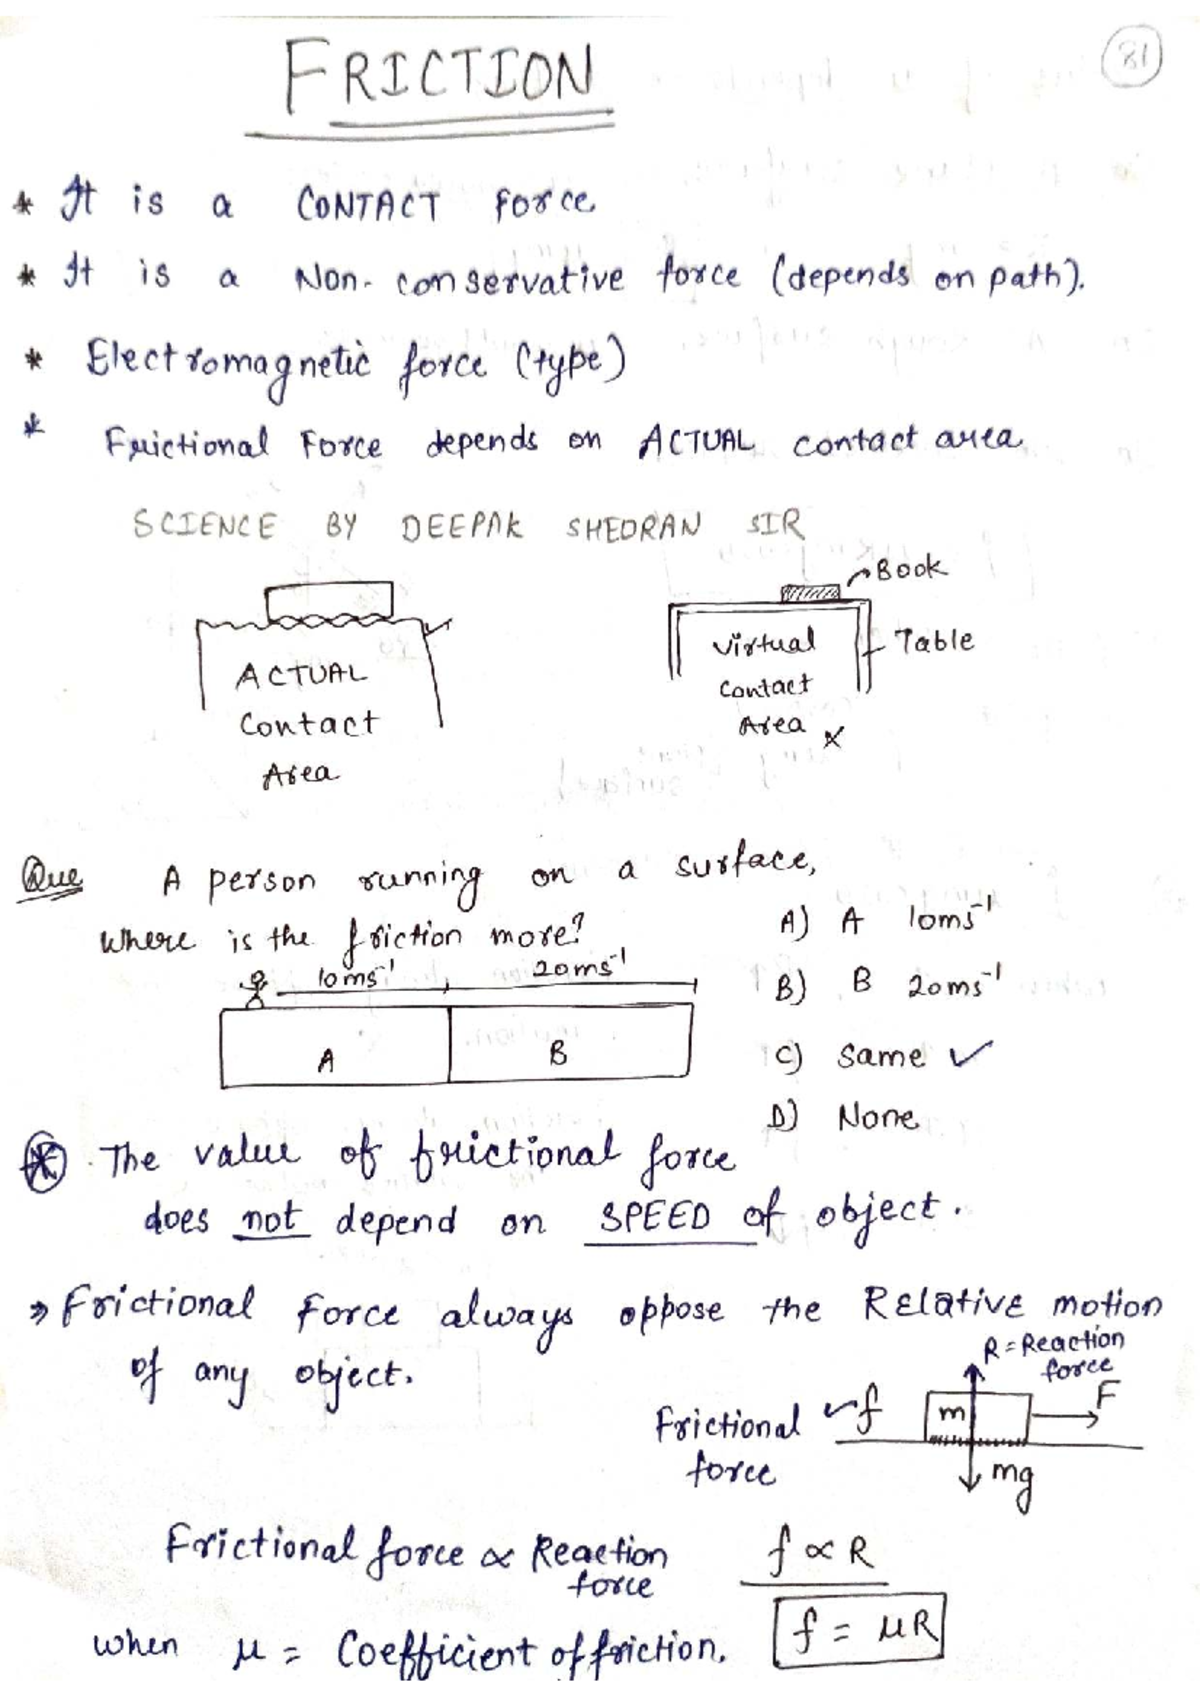 FRICTION
81
* It is a CONTACT Force
* It is a Non-conservative force (depends on path).
* Electromagnetic force (type)
* Frictional Force depends on ACTUAL contact area.
SCIENCE BY DEEPAK SHEORAN SIR
Book
Table
ACTUAL
Contact
Area
Virtual
Contact
Area ×
Que A person running on a surface,
where is the friction more?
10ms⁻¹ 20ms⁻¹
A B
A) A 10ms⁻¹
B) B 20ms⁻¹
C) Same ✓
D) None
* The value of frictional force
does not depend on SPEED of object.
» Frictional Force always oppose the RElative motion
of any object.
R = Reaction
force
Frictional f m F
force mg
Frictional force ∝ Reaction
force
f ∝ R
f = μR
when μ = Coefficient of friction.